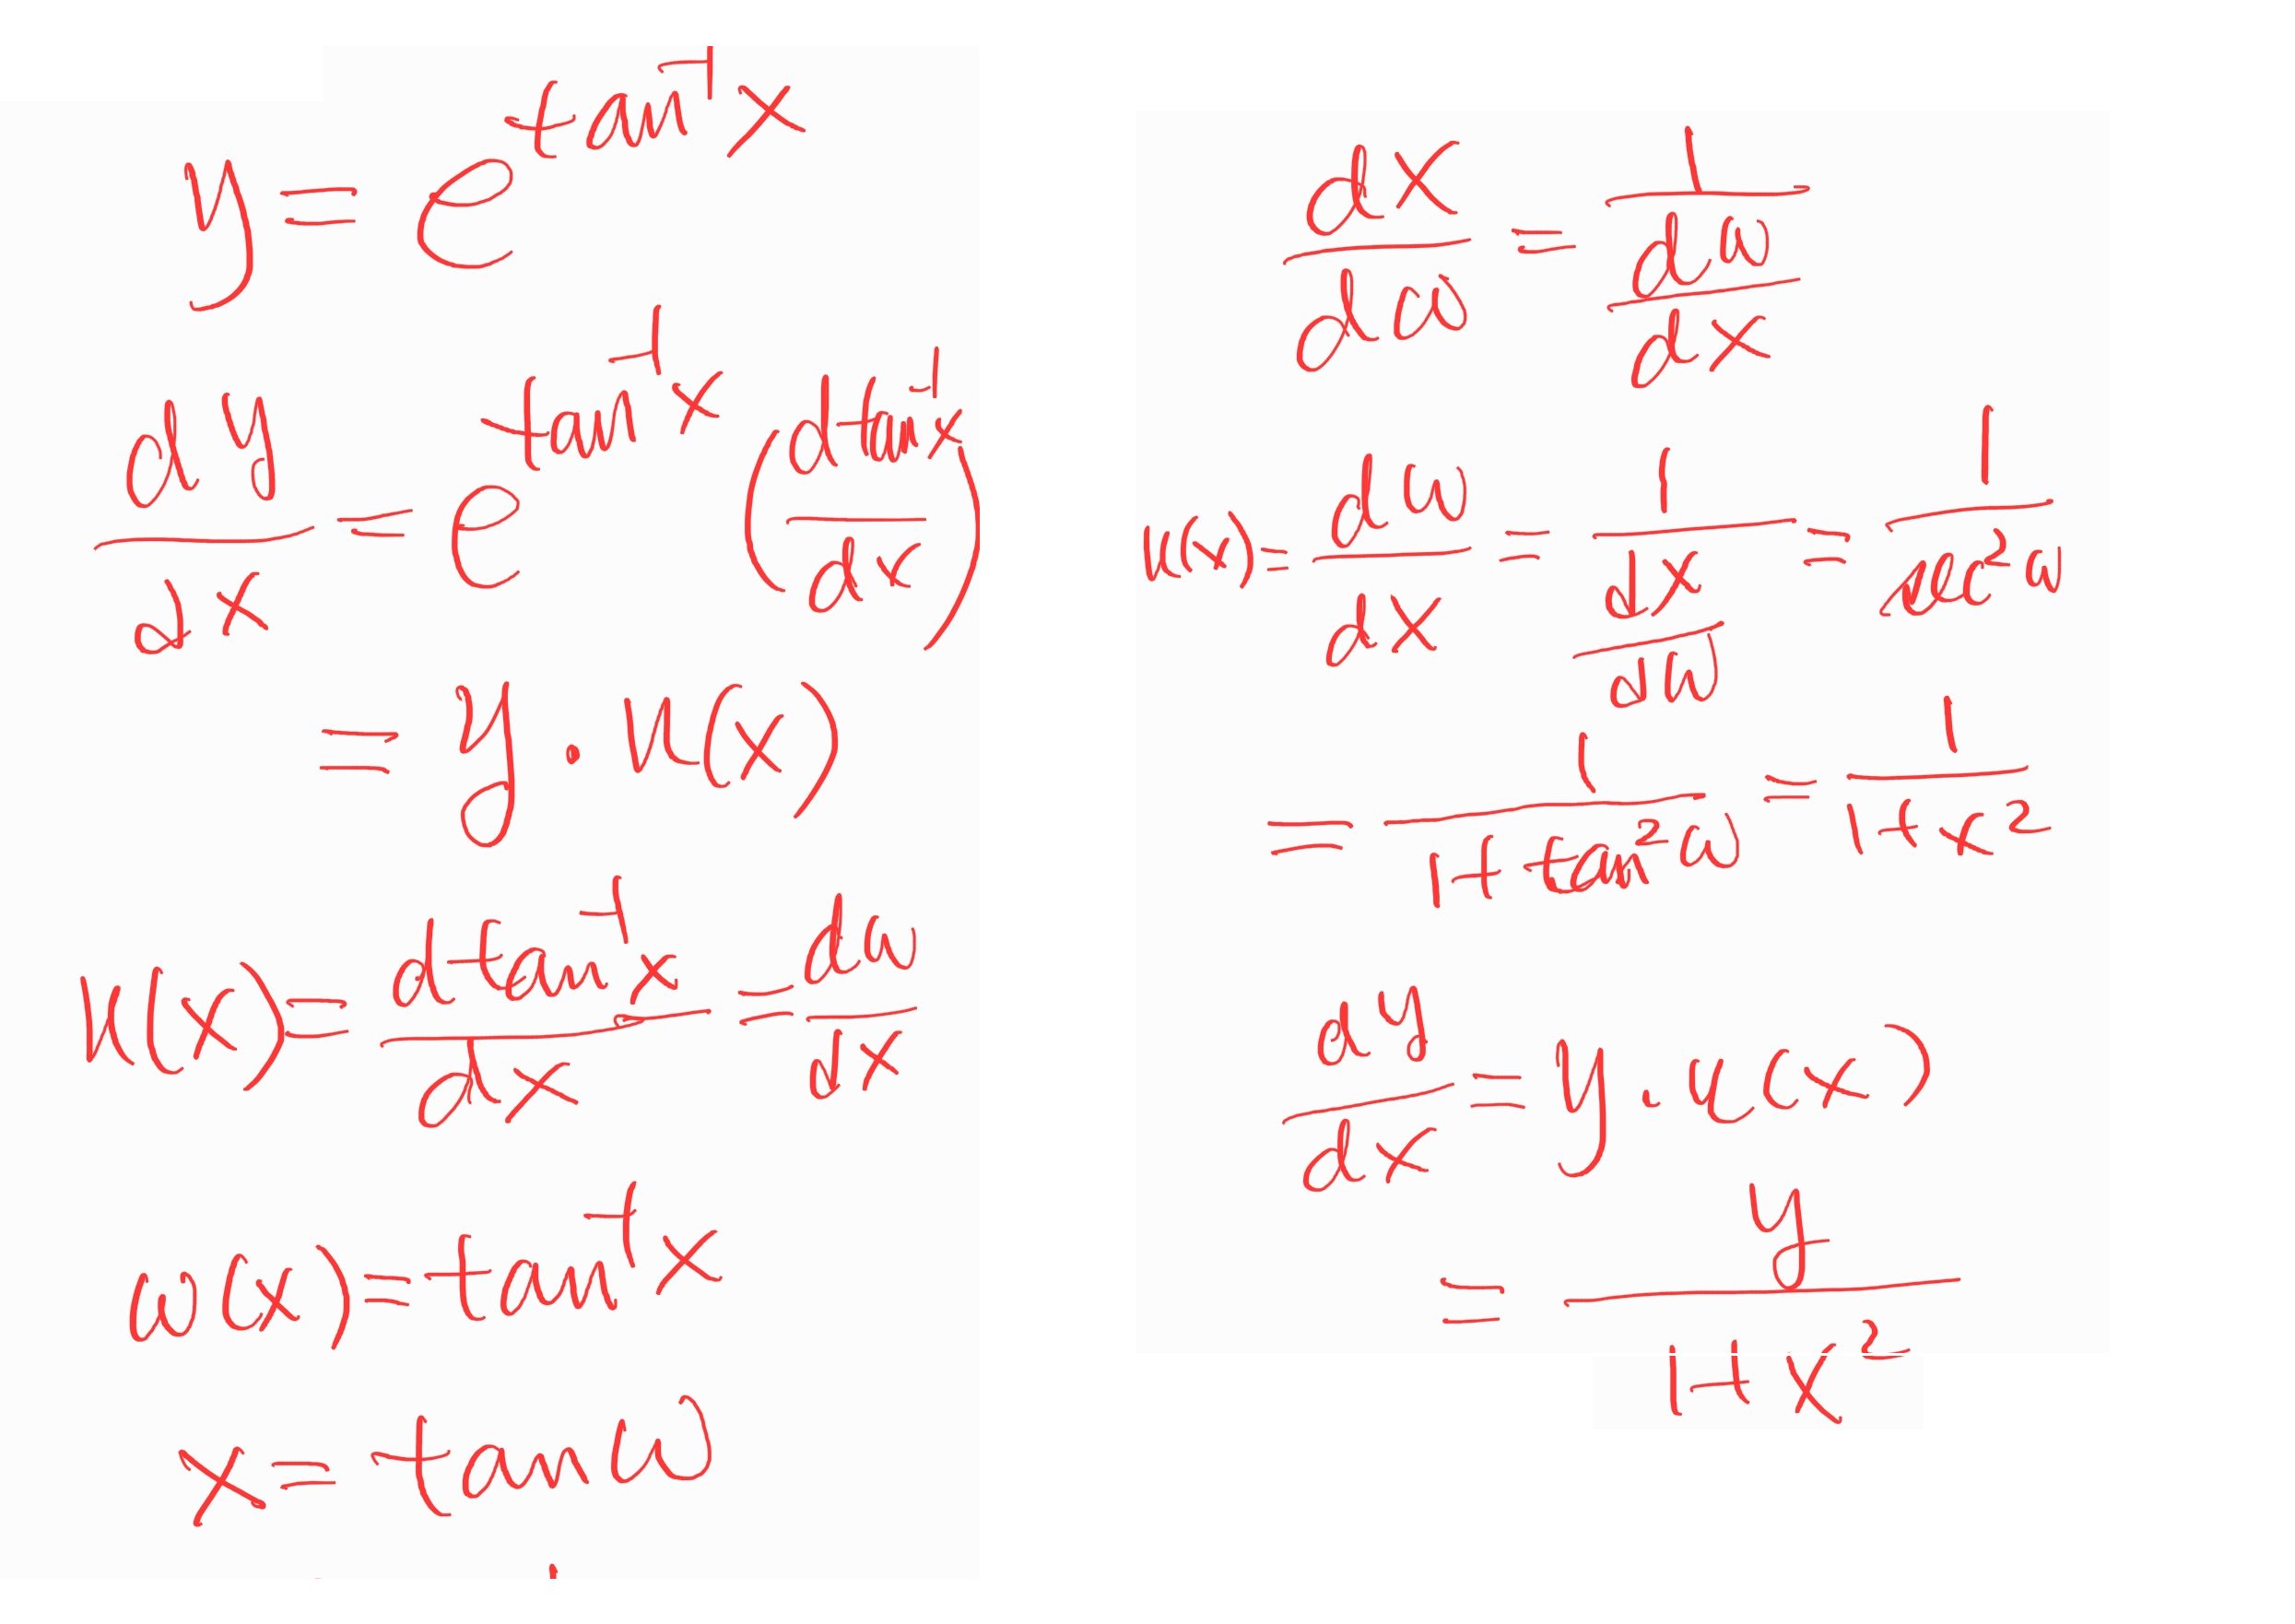 y = e^{tan^{-1} x}
dy/dx = e^{tan^{-1} x} (d tan^{-1} x / dx)
= y · u(x)
u(x) = d tan^{-1} x / dx = dω/dx
ω(x) = tan^{-1} x
x = tan ω
dx/dω = 1/(dω/dx)
u(x) = dω/dx = 1/(dx/dω) = 1/sec² ω
= 1/(1 + tan² ω) = 1/(1 + x²)
dy/dx = y · u(x)
= y/(1 + x²)